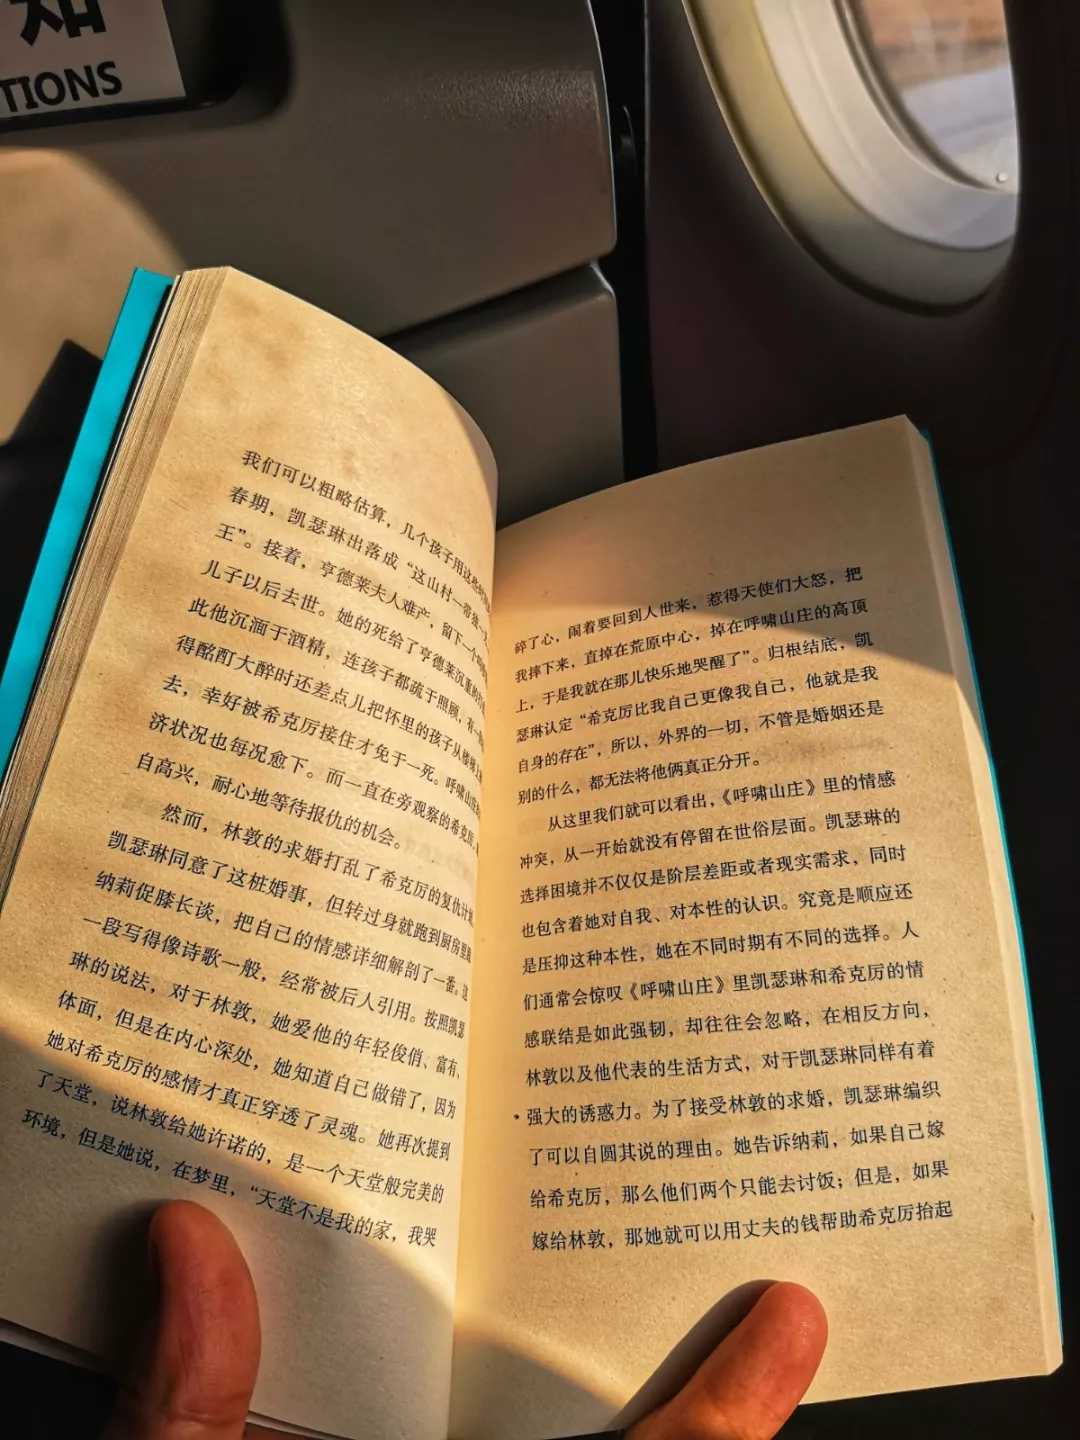 知
TIONS
我们可以粗略估算，几个孩子用这些
春期，凯瑟琳出落成“这山村一带独一
王”。接着，亨德莱夫人难产，留下一个
儿子以后去世。她的死给了亨德莱沉重的打
此他沉湎于酒精，连孩子都疏于照顾，有一
得酩酊大醉时还差点儿把怀里的孩子从楼梯上
去，幸好被希克厉接住才免于一死。呼啸山庄
济状况也每况愈下。而一直在旁观察的希克厉，
自高兴，耐心地等待报仇的机会。
然而，林敦的求婚打乱了希克厉的复仇计划
凯瑟琳同意了这桩婚事，但转过身就跑到厨房里跟
纳莉促膝长谈，把自己的情感详细解剖了一番。这
一段写得像诗歌一般，经常被后人引用。按照凯瑟
琳的说法，对于林敦，她爱他的年轻俊俏、富有、
体面，但是在内心深处，她知道自己做错了，因为
她对希克厉的感情才真正穿透了灵魂。她再次提到
了天堂，说林敦给她许诺的，是一个天堂般完美的
环境，但是她说，在梦里，“天堂不是我的家，我哭
碎了心，闹着要回到人世来，惹得天使们大怒，把
我摔下来，直掉在荒原中心，掉在呼啸山庄的高顶
上，于是我就在那儿快乐地哭醒了”。归根结底，凯
瑟琳认定“希克厉比我自己更像我自己，他就是我
自身的存在”，所以，外界的一切，不管是婚姻还是
别的什么，都无法将他俩真正分开。
从这里我们就可以看出，《呼啸山庄》里的情感
冲突，从一开始就没有停留在世俗层面。凯瑟琳的
选择困境并不仅仅是阶层差距或者现实需求，同时
也包含着她对自我、对本性的认识。究竟是顺应还
是压抑这种本性，她在不同时期有不同的选择。人
们通常会惊叹《呼啸山庄》里凯瑟琳和希克厉的情
感联结是如此强韧，却往往会忽略，在相反方向，
林敦以及他代表的生活方式，对于凯瑟琳同样有着
强大的诱惑力。为了接受林敦的求婚，凯瑟琳编织
了可以自圆其说的理由。她告诉纳莉，如果自己嫁
给希克厉，那么他们两个只能去讨饭；但是，如果
嫁给林敦，那她就可以用丈夫的钱帮助希克厉抬起